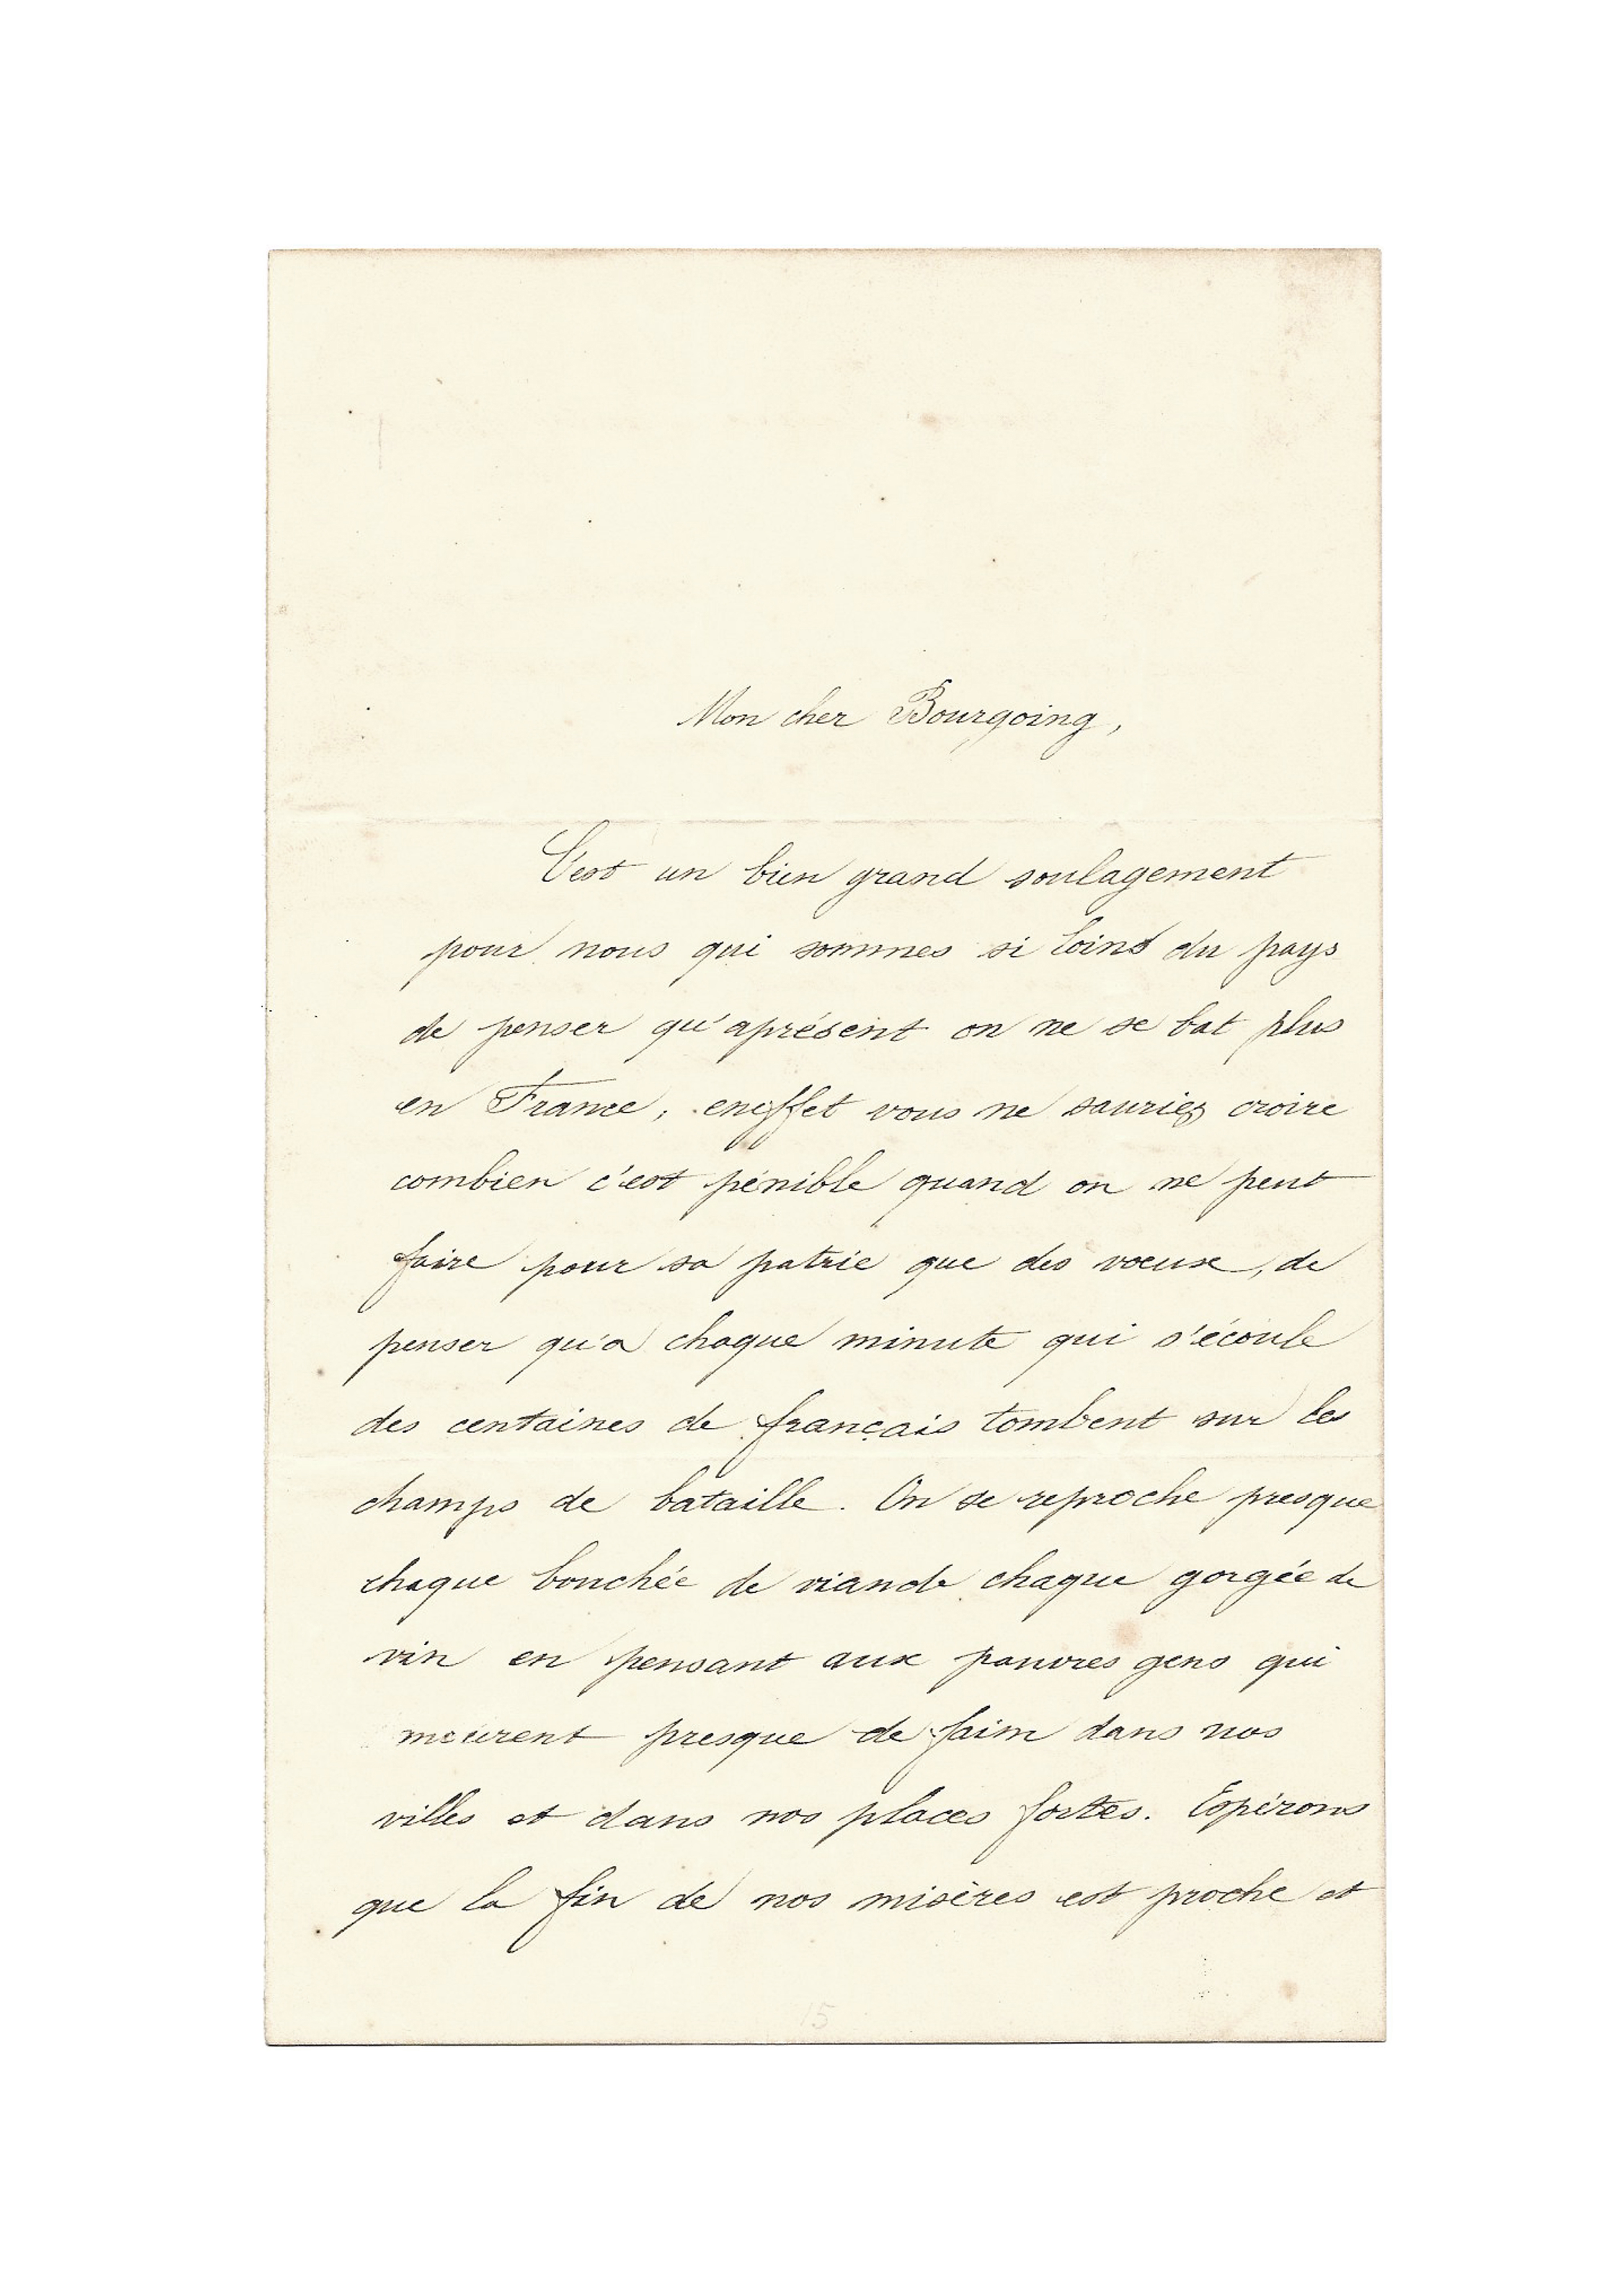 Mon cher Bourgoing,
C'est un bien grand soulagement
pour nous qui sommes si loins du pays
de penser qu'aprésent on ne se bat plus
en France, eneffet vous ne sauriez croire
combien c'est pénible quand on ne peut
faire pour sa patrie que des vœux, de
penser qu'a chaque minute qui s'écoule
des centaines de français tombent sur les
champs de bataille. On se reproche presque
chaque bouchée de viande chaque gorgée de
vin en pensant aux pauvres gens qui
meurent presque de faim dans nos
villes et dans nos places fortes. Espérons
que la fin de nos misères est proche et
15